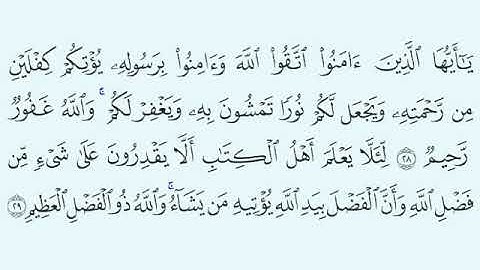 يَـٰٓأَيُّهَا ٱلَّذِينَ ءَامَنُوا۟ ٱتَّقُوا۟ ٱللَّهَ وَءَامِنُوا۟ بِرَسُولِهِۦ يُؤْتِكُمْ كِفْلَيْنِ
مِن رَّحْمَتِهِۦ وَيَجْعَل لَّكُمْ نُورًا تَمْشُونَ بِهِۦ وَيَغْفِرْ لَكُمْ ۚ وَٱللَّهُ غَفُورٌ
رَّحِيمٌ ٢٨ لِّئَلَّا يَعْلَمَ أَهْلُ ٱلْكِتَـٰبِ أَلَّا يَقْدِرُونَ عَلَىٰ شَىْءٍ مِّن
فَضْلِ ٱللَّهِ وَأَنَّ ٱلْفَضْلَ بِيَدِ ٱللَّهِ يُؤْتِيهِ مَن يَشَآءُ ۚ وَٱللَّهُ ذُو ٱلْفَضْلِ ٱلْعَظِيمِ ٢٩